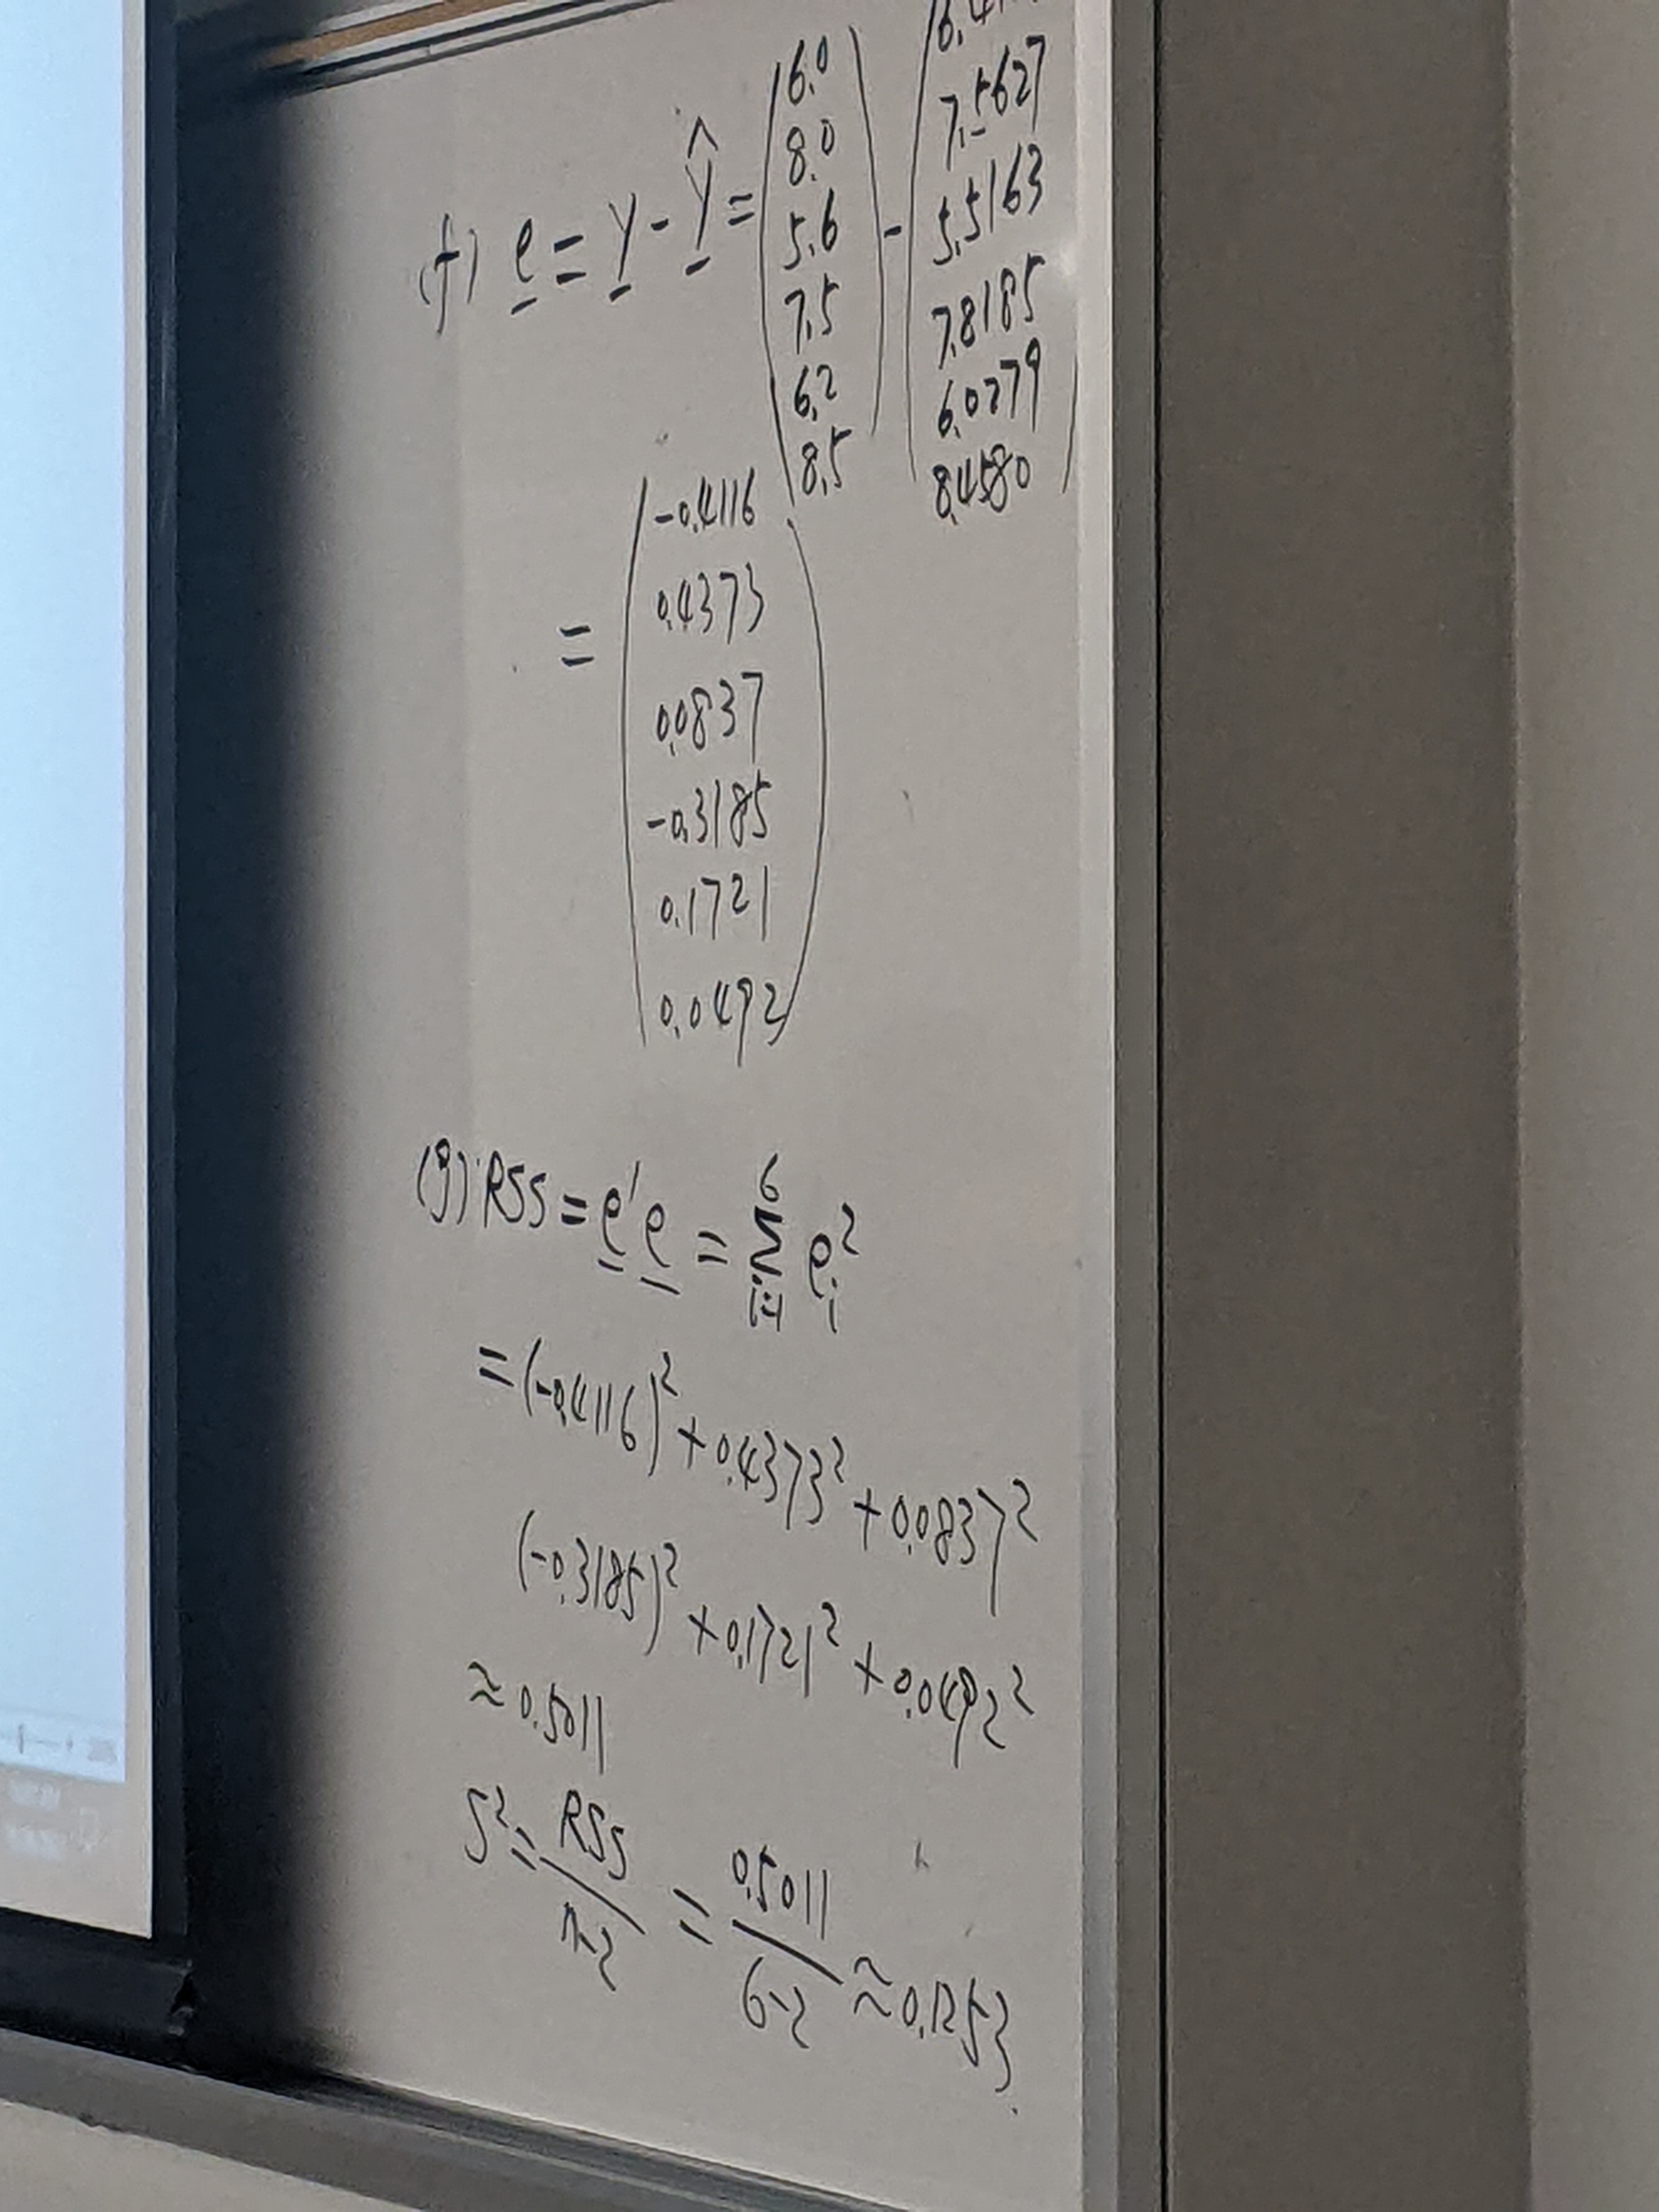 (f) e = y - ŷ = (6.0 8.0 5.6 7.5 6.2 8.5) - (7.5627 5.5163 7.8185 6.0279 8.4580)
= (-0.4116 0.4373 0.0837 -0.3185 0.1721 0.0492)
(g) RSS = e'e = Σ_{i=1}^{6} e_i^2
= (-0.4116)^2 + 0.4373^2 + 0.0837^2
(-0.3185)^2 + 0.1721^2 + 0.0492^2
≈ 0.5011
S^2 = RSS / n-2 = 0.5011 / 6-2 ≈ 0.1253